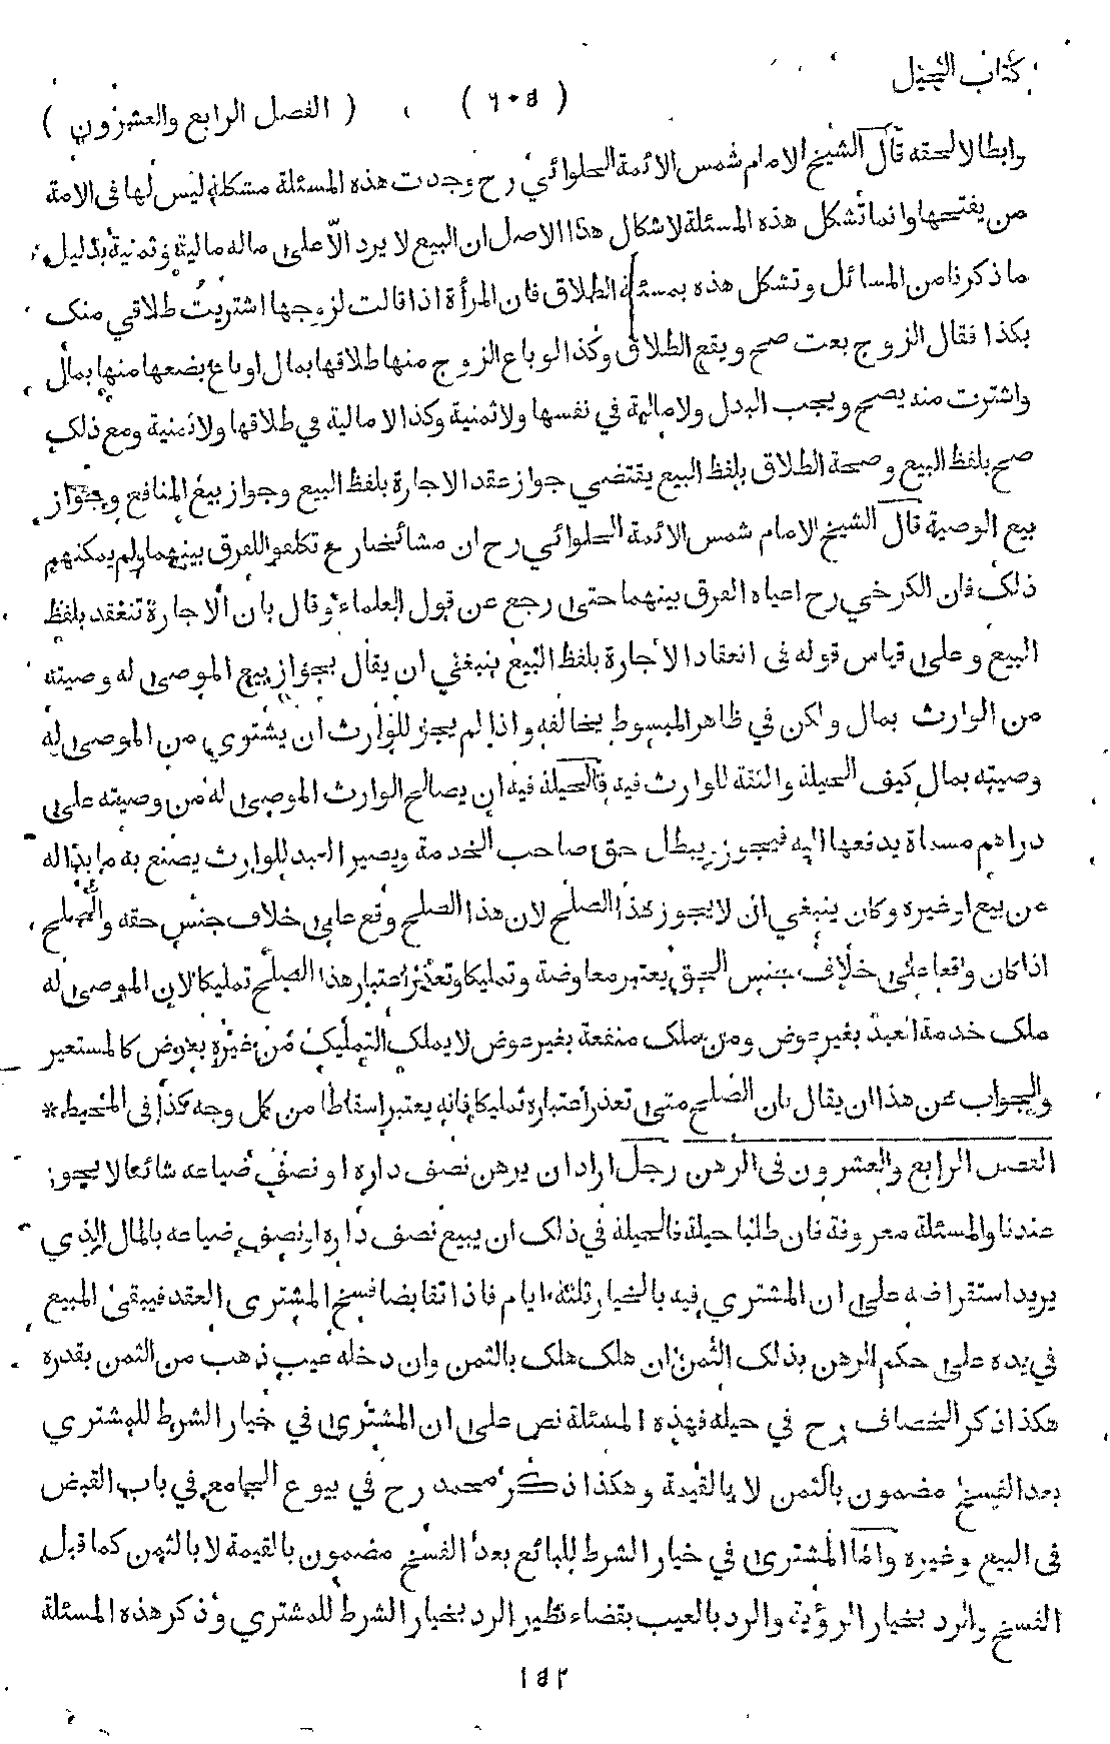 كتاب الحيل
( ٦٠٥ ) ( الفصل الرابع والعشرون )
وابطالا لحقه قال الشيخ الامام شمس الائمة الحلوائي رح وجدت هذه المسئلة مشكلة ليس لها في الامة
من يفتحها وانما تشكل هذه المسئلة لاشكال هذا الاصل ان البيع لا يرد الا على ماله مالية وثمنية بدليل
ما ذكرنا من المسائل وتشكل هذه بمسئلة الطلاق فان المرأة اذا قالت لزوجها اشتريت طلاقي منك
بكذا فقال الزوج بعت صح ويقع الطلاق وكذا لو باع الزوج منها طلاقها بمال او باع بضعها منها بمال
واشترت منه يصح ويجب البدل ولا مالية في نفسها ولا ثمنية وكذا لا مالية في طلاقها ولا ثمنية ومع ذلك
صح بلفظ البيع وصحة الطلاق بلفظ البيع يقتضي جواز عقد الاجارة بلفظ البيع وجواز بيع المنافع وجواز
بيع الوصية قال الشيخ الامام شمس الائمة الحلوائي رح ان مشائخنا رح تكلفوا للفرق بينهما ولم يمكنهم
ذلك فان الكرخي رح اعياه الفرق بينهما حتى رجع عن قول العلماء وقال بان الاجارة تنعقد بلفظ
البيع وعلى قياس قوله في انعقاد الاجارة بلفظ البيع ينبغي ان يقال بجواز بيع الموصى له وصيته
من الوارث بمال ولكن في ظاهر المبسوط يخالفه واذا لم يجز للوارث ان يشتوي من الموصى له
وصيته بمال كيف الحيلة والثقة للوارث فيه فالحيلة فيه ان يصالح الوارث الموصى له من وصيته على
دراهم مسماة يدفعها اليه فيجوز يبطل حق صاحب الخدمة ويصير العبد للوارث يصنع به ما بدا له
من بيع او غيره وكان ينبغي ان لا يجوز هذا الصلح لان هذا الصلح وقع على خلاف جنس حقه والصلح
اذا كان واقعا على خلاف جنس الحق يعتبر معاوضة وتمليكا وتعذر اعتبار هذا الصلح تمليكا لان الموصى له
ملك خدمة العبد بغير عوض ومن ملك منفعة بغير عوض لا يملك التمليك من غيره بعوض كالمستعير
والجواب عن هذا ان يقال بان الصلح متى تعذر اعتباره تمليكا فانه يعتبر اسقاطا من كل وجه كذا في المحيط *
الفصل الرابع والعشرون في الرهن رجل اراد ان يرهن نصف داره او نصف ضياعه شائعا لا يجوز
عندنا والمسئلة معروفة فان طلبا حيلة فالحيلة في ذلك ان يبيع نصف داره او نصف ضياعه بالمال الذي
يريد استقراضه على ان المشتري فيه بالخيار ثلثة ايام فاذا تقابضا فسخ المشتري العقد فيبقى المبيع
في يده على حكم الرهن بذلك الثمن ان هلك هلك بالثمن وان دخله عيب ذهب من الثمن بقدره
هكذا ذكر الخصاف رح في حيله فهذه المسئلة نص على ان المشترى في خيار الشرط للمشتري
بعد الفسخ مضمون بالثمن لا بالقيمة وهكذا ذكر محمد رح في بيوع الجامع في باب القبض
في البيع وغيره واما المشترى في خيار الشرط للبائع بعد الفسخ مضمون بالقيمة لا بالثمن كما قبل
الفسخ والرد بخيار الرؤية والرد بالعيب بقضاء نظير الرد بخيار الشرط للمشتري وذكر هذه المسئلة
١٥٢